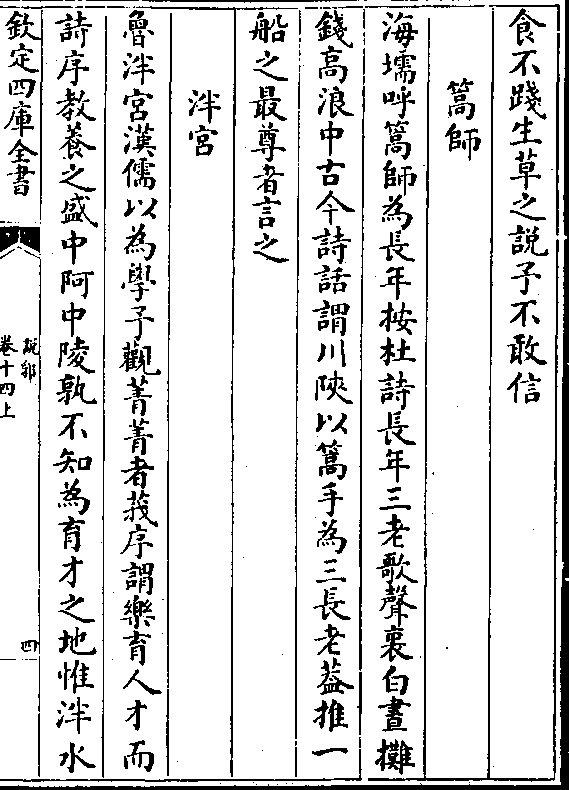 食不踐生草之説予不敢信
篙師
海壖呼篙師為長年按杜詩長年三老歌聲裏白晝攤
錢高浪中古今詩話謂川陜以篙手為三長老葢推一
船之最尊者言之
泮宮
魯泮宮漢儒以為學予觀菁菁者莪序謂樂育人才而
詩序教養之盛中阿中陵孰不知為育才之地惟泮水
欽定四庫全書
説郛
卷十四上
四